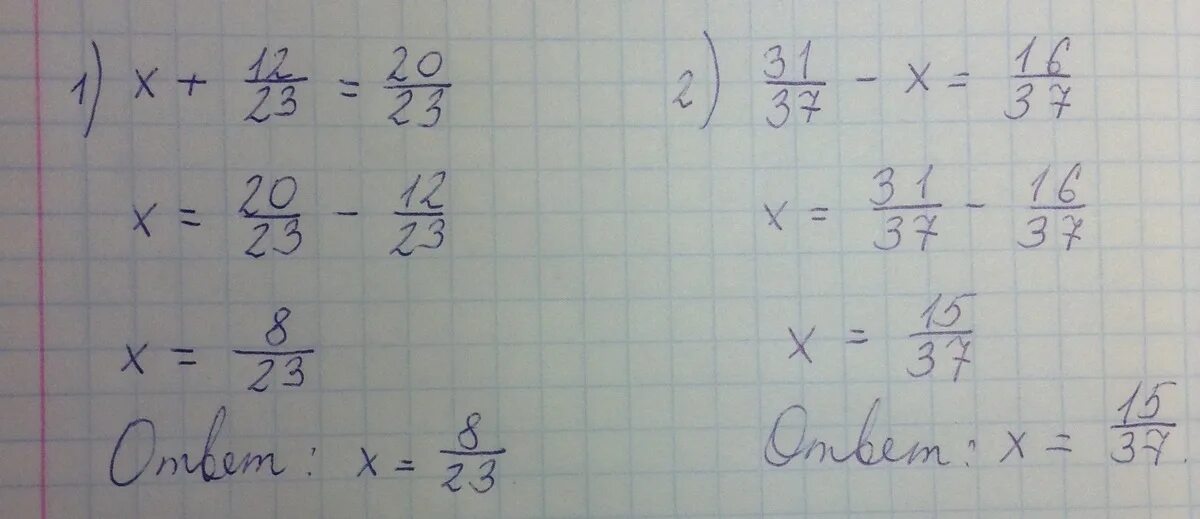 1) x + 12/23 = 20/23
x = 20/23 - 12/23
x = 8/23
Ответ: x = 8/23
2) 31/37 - x = 16/37
x = 31/37 - 16/37
x = 15/37
Ответ: x = 15/37.